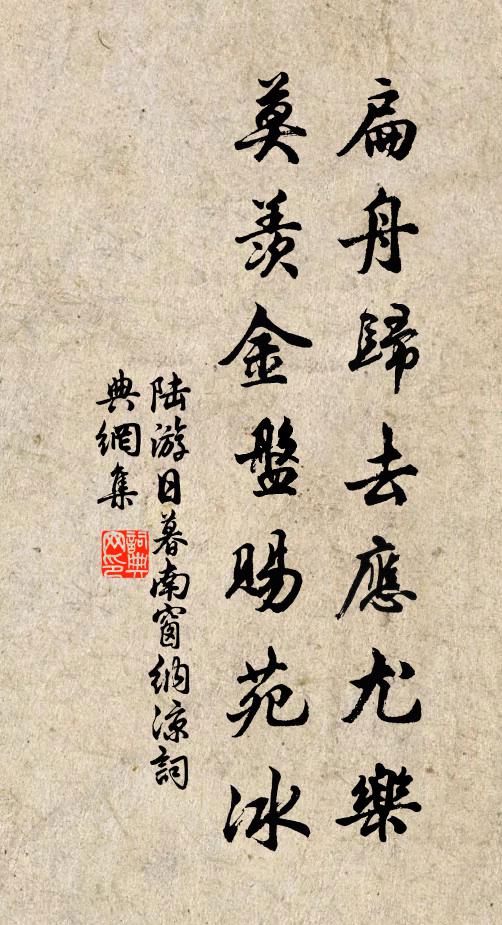 扁舟歸去應尤樂
莫羨金盤賜苑冰
陆游日暮南窗納涼詞
典網集
詞典網印